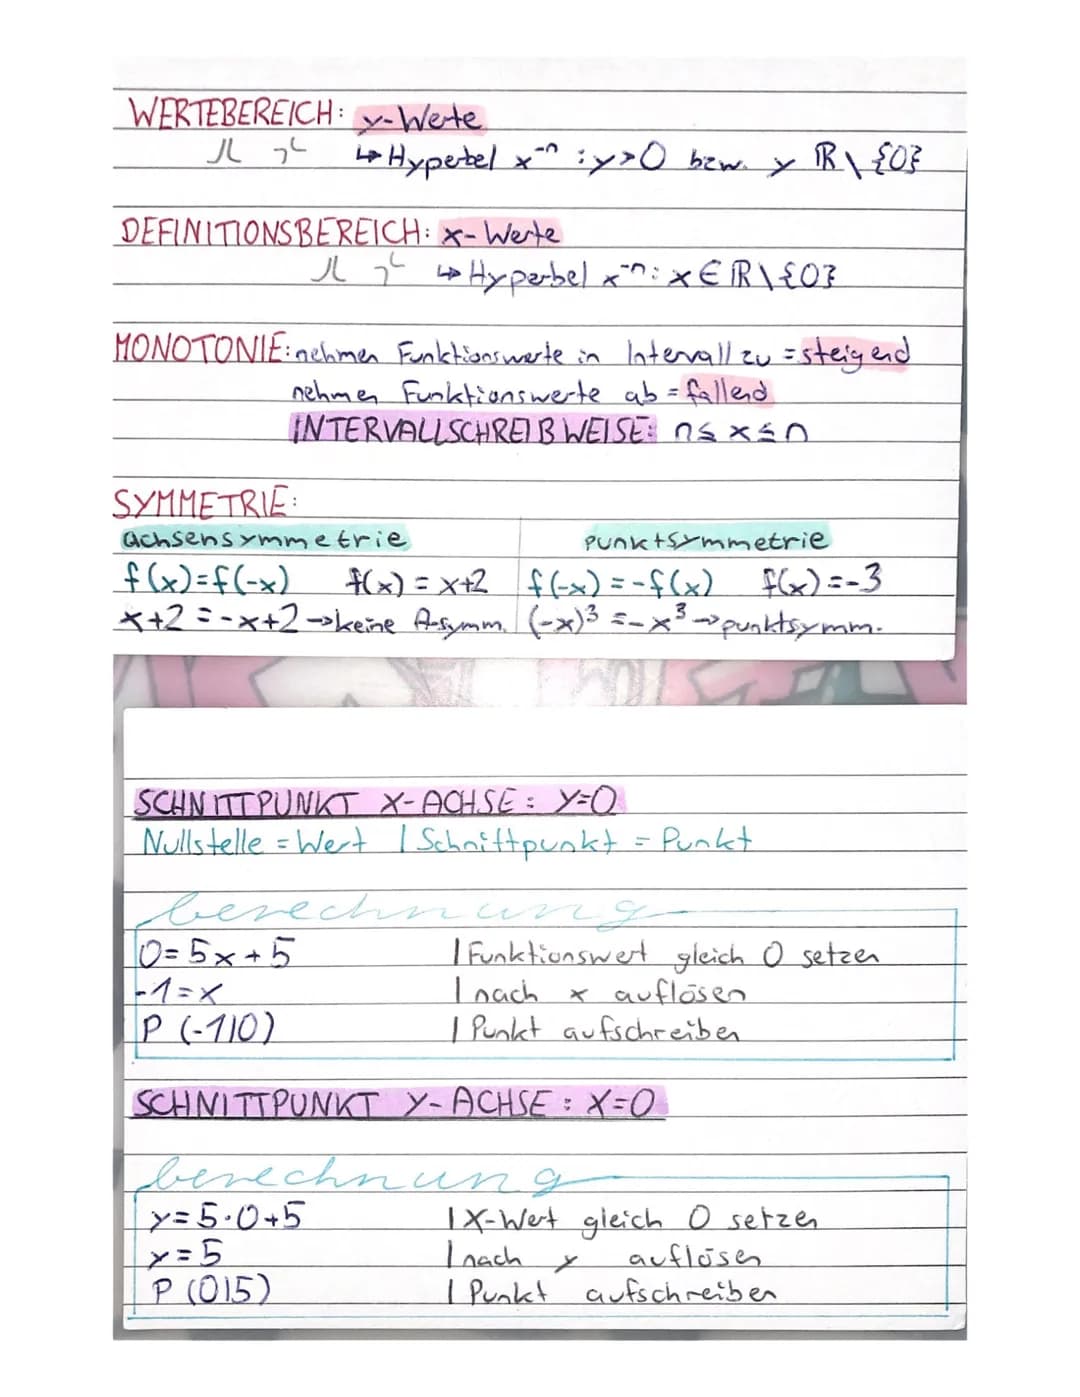 WERTEBEREICH: y-Werte
↳ Hyperbel x⁻ⁿ : y>0 bzw. y ℝ\{0}
DEFINITIONSBEREICH: x-Werte
↳ Hyperbel x⁻ⁿ: x∈ℝ\{0}
MONOTONIE: nehmen Funktionswerte in Intervall zu = steigend
nehmen Funktionswerte ab = fallend
INTERVALLSCHREIBWEISE: n≤x≤n
SYMMETRIE:
achsensymmetrie
f(x)=f(-x) f(x)=x+2
x+2=-x+2→keine A-symm.
punktsymmetrie
f(-x)=-f(x) f(x)=-3
(-x)³=-x³→punktsymm.
SCHNITTPUNKT X-ACHSE: y=0
Nullstelle = Wert | Schnittpunkt = Punkt
berechnung
0=5x+5 | Funktionswert gleich 0 setzen
-1=x | nach x auflösen
P (-1|0) | Punkt aufschreiben
SCHNITTPUNKT Y-ACHSE: X=0
berechnung
y=5·0+5 | X-Wert gleich 0 setzen
y=5 | nach y auflösen
P (0|5) | Punkt aufschreiben